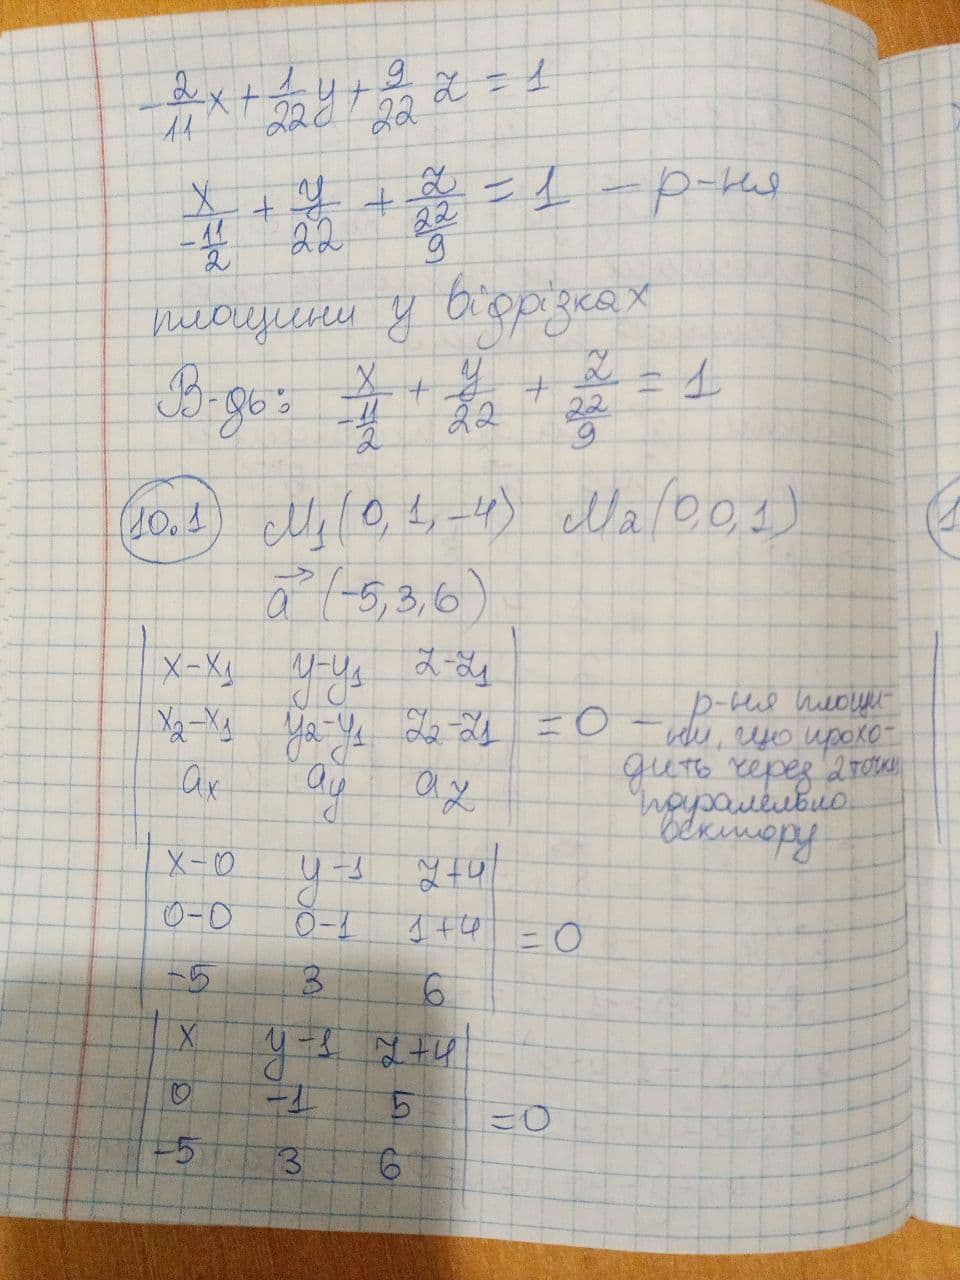 -2/11 x + 1/22 y + 9/22 z = 1
x/(-11/2) + y/22 + z/(22/9) = 1 – р-ня
площини у відрізках
В-дь: x/(-11/2) + y/22 + z/(22/9) = 1
10.1 M₁(0, 1, -4) M₂(0,0,1)
a⃗ (-5,3,6)
| x-x₁ y-y₁ z-z₁ |
| x₂-x₁ y₂-y₁ z₂-z₁ | = 0 – р-ня площи-
| aₓ a_y a_z |
ни, що прохо-
дить через 2 точки
паралельно
вектору
| x-0 y-1 z+4 |
| 0-0 0-1 1+4 | = 0
| -5 3 6 |
| x y-1 z+4 |
| 0 -1 5 | = 0
| -5 3 6 |